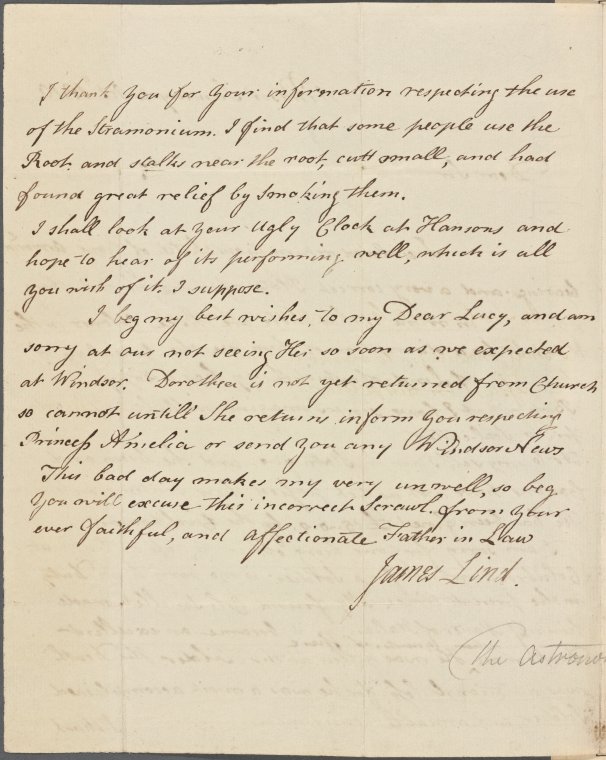 I thank you for your information respecting the use
of the Stramonium. I find that some people use the
Root. and stalks near the root, cutt small, and had
found great relief by smoking them.
I shall look at your Ugly Clock at Hansons and
hope to hear of its performing well, which is all
you wish of it. I suppose.
I beg my best wishes, to my Dear Lucy, and am
sorry at our not seeing Her so soon as we expected
at Windsor. Dorothea is not yet returned from Church
so cannot untill She returns inform you respecting
Princess Amelia or send you any Windsor News
This bad day makes my very unwell, so beg
you will excuse this incorrect Scrawl. from your
ever faithful, and affectionate Father in Law
James Lind.
(the astrono